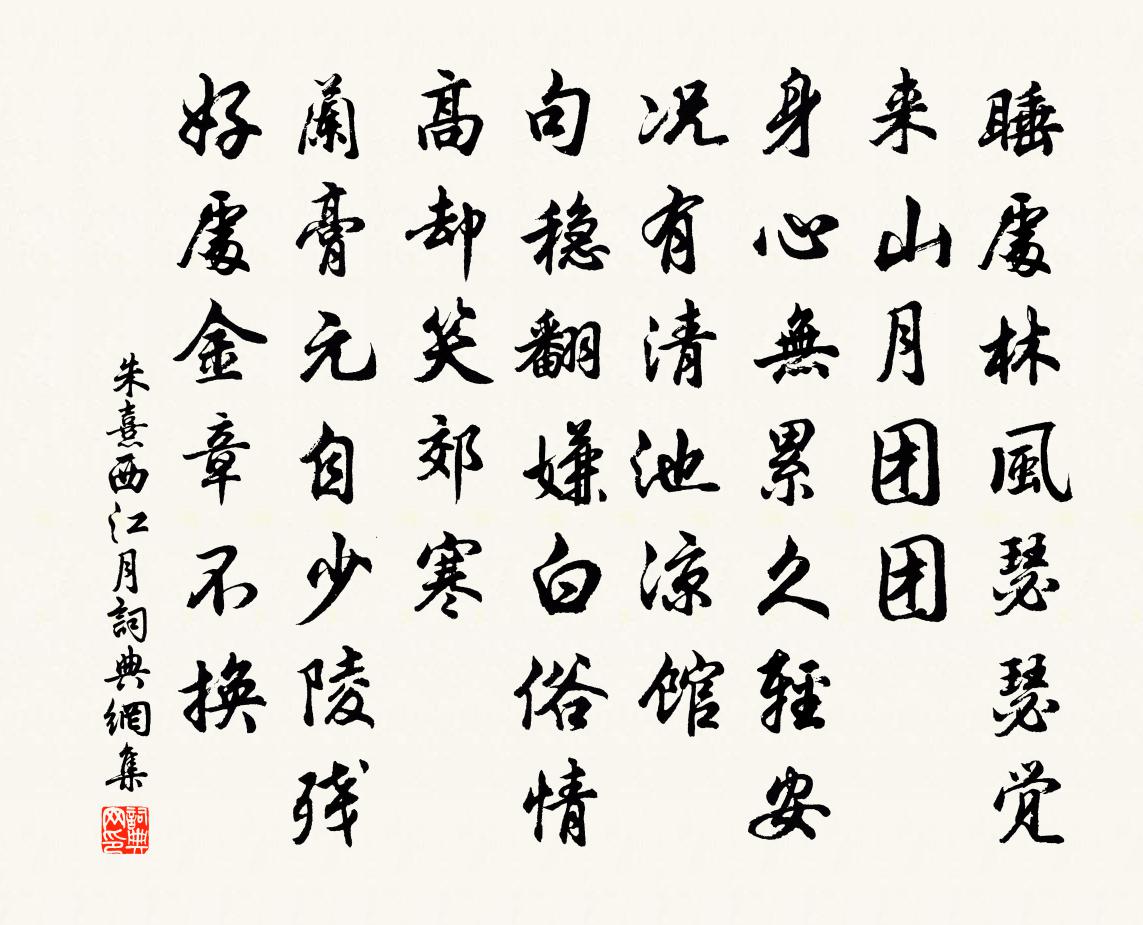 睡處林風瑟瑟觉
来山月团团
身心無累久輕安
况有清池凉馆
句稳翻嫌白俗情
高却笑郊寒
蘭膏元自少陵残
好處金章不换
朱熹西江月詞典網集
詞典网印